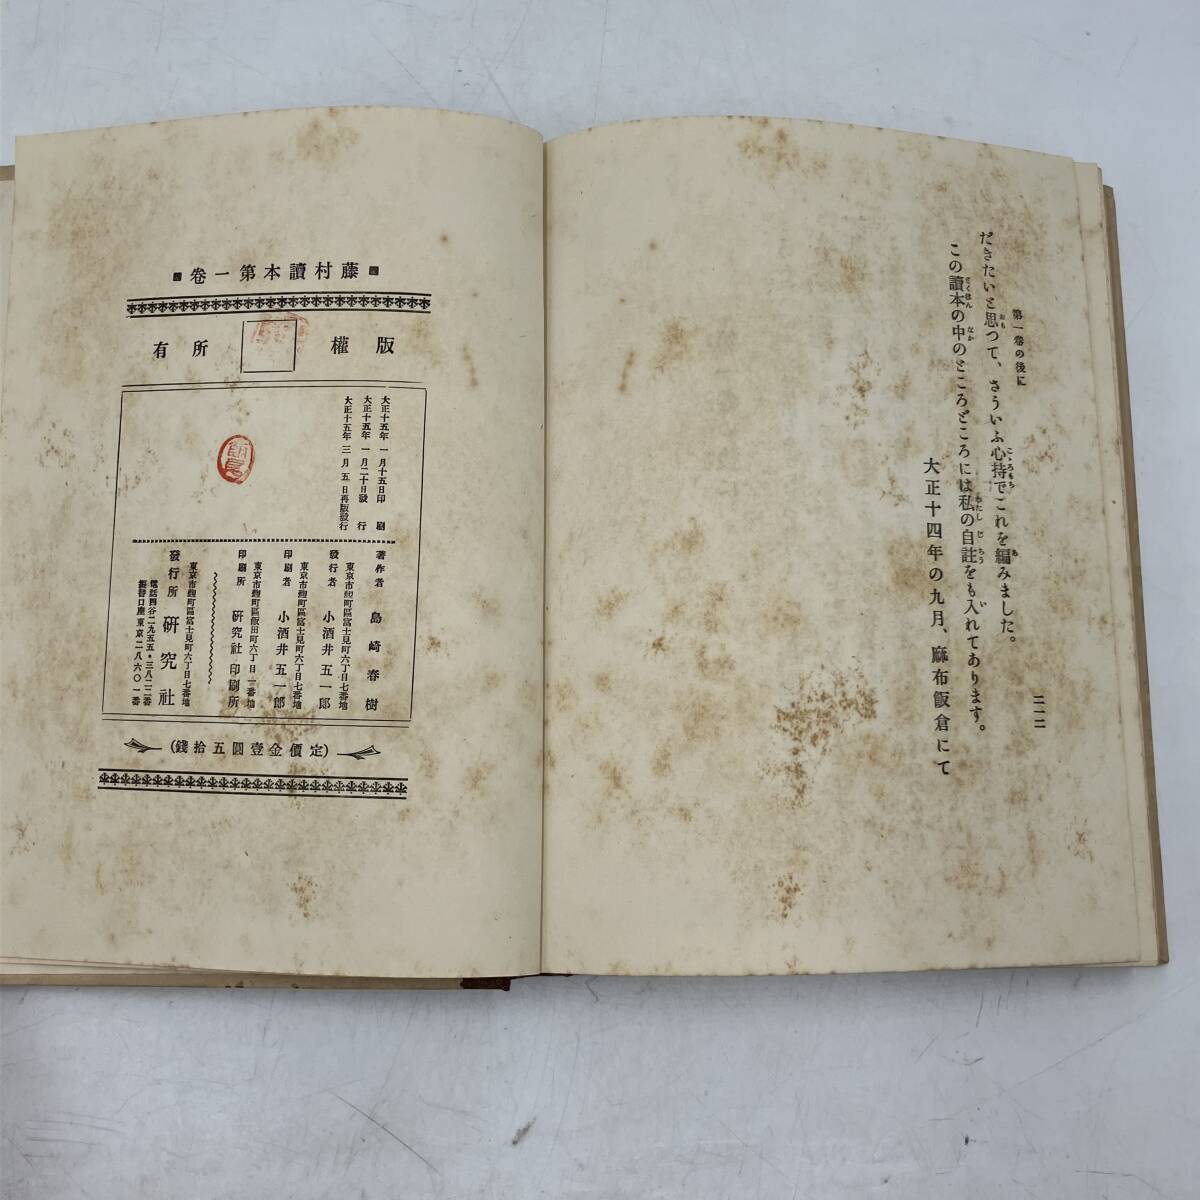 第一卷の後に
二一二
だきたいと思つて、さういふ心持でこれを編みました。
この讀本の中のところどころには私の自註をも入れてあります。
大正十四年の九月、麻布飯倉にて
藤村讀本第一卷
版權所有
大正十五年一月十五日印刷
大正十五年一月二十日發行
大正十五年三月五日再版發行
著作者 島崎春樹
東京市麴町區富士見町六丁目七番地
發行者 小酒井五一郎
東京市麴町區富士見町六丁目七番地
印刷者 小酒井五一郎
東京市麴町區飯田町六丁目一番地
印刷所 研究社印刷所
東京市麴町區富士見町六丁目七番地
發行所 研究社
電話四谷二九五五・三八二二番
振替口座東京二八六〇一番
(定價金壹圓五拾錢)